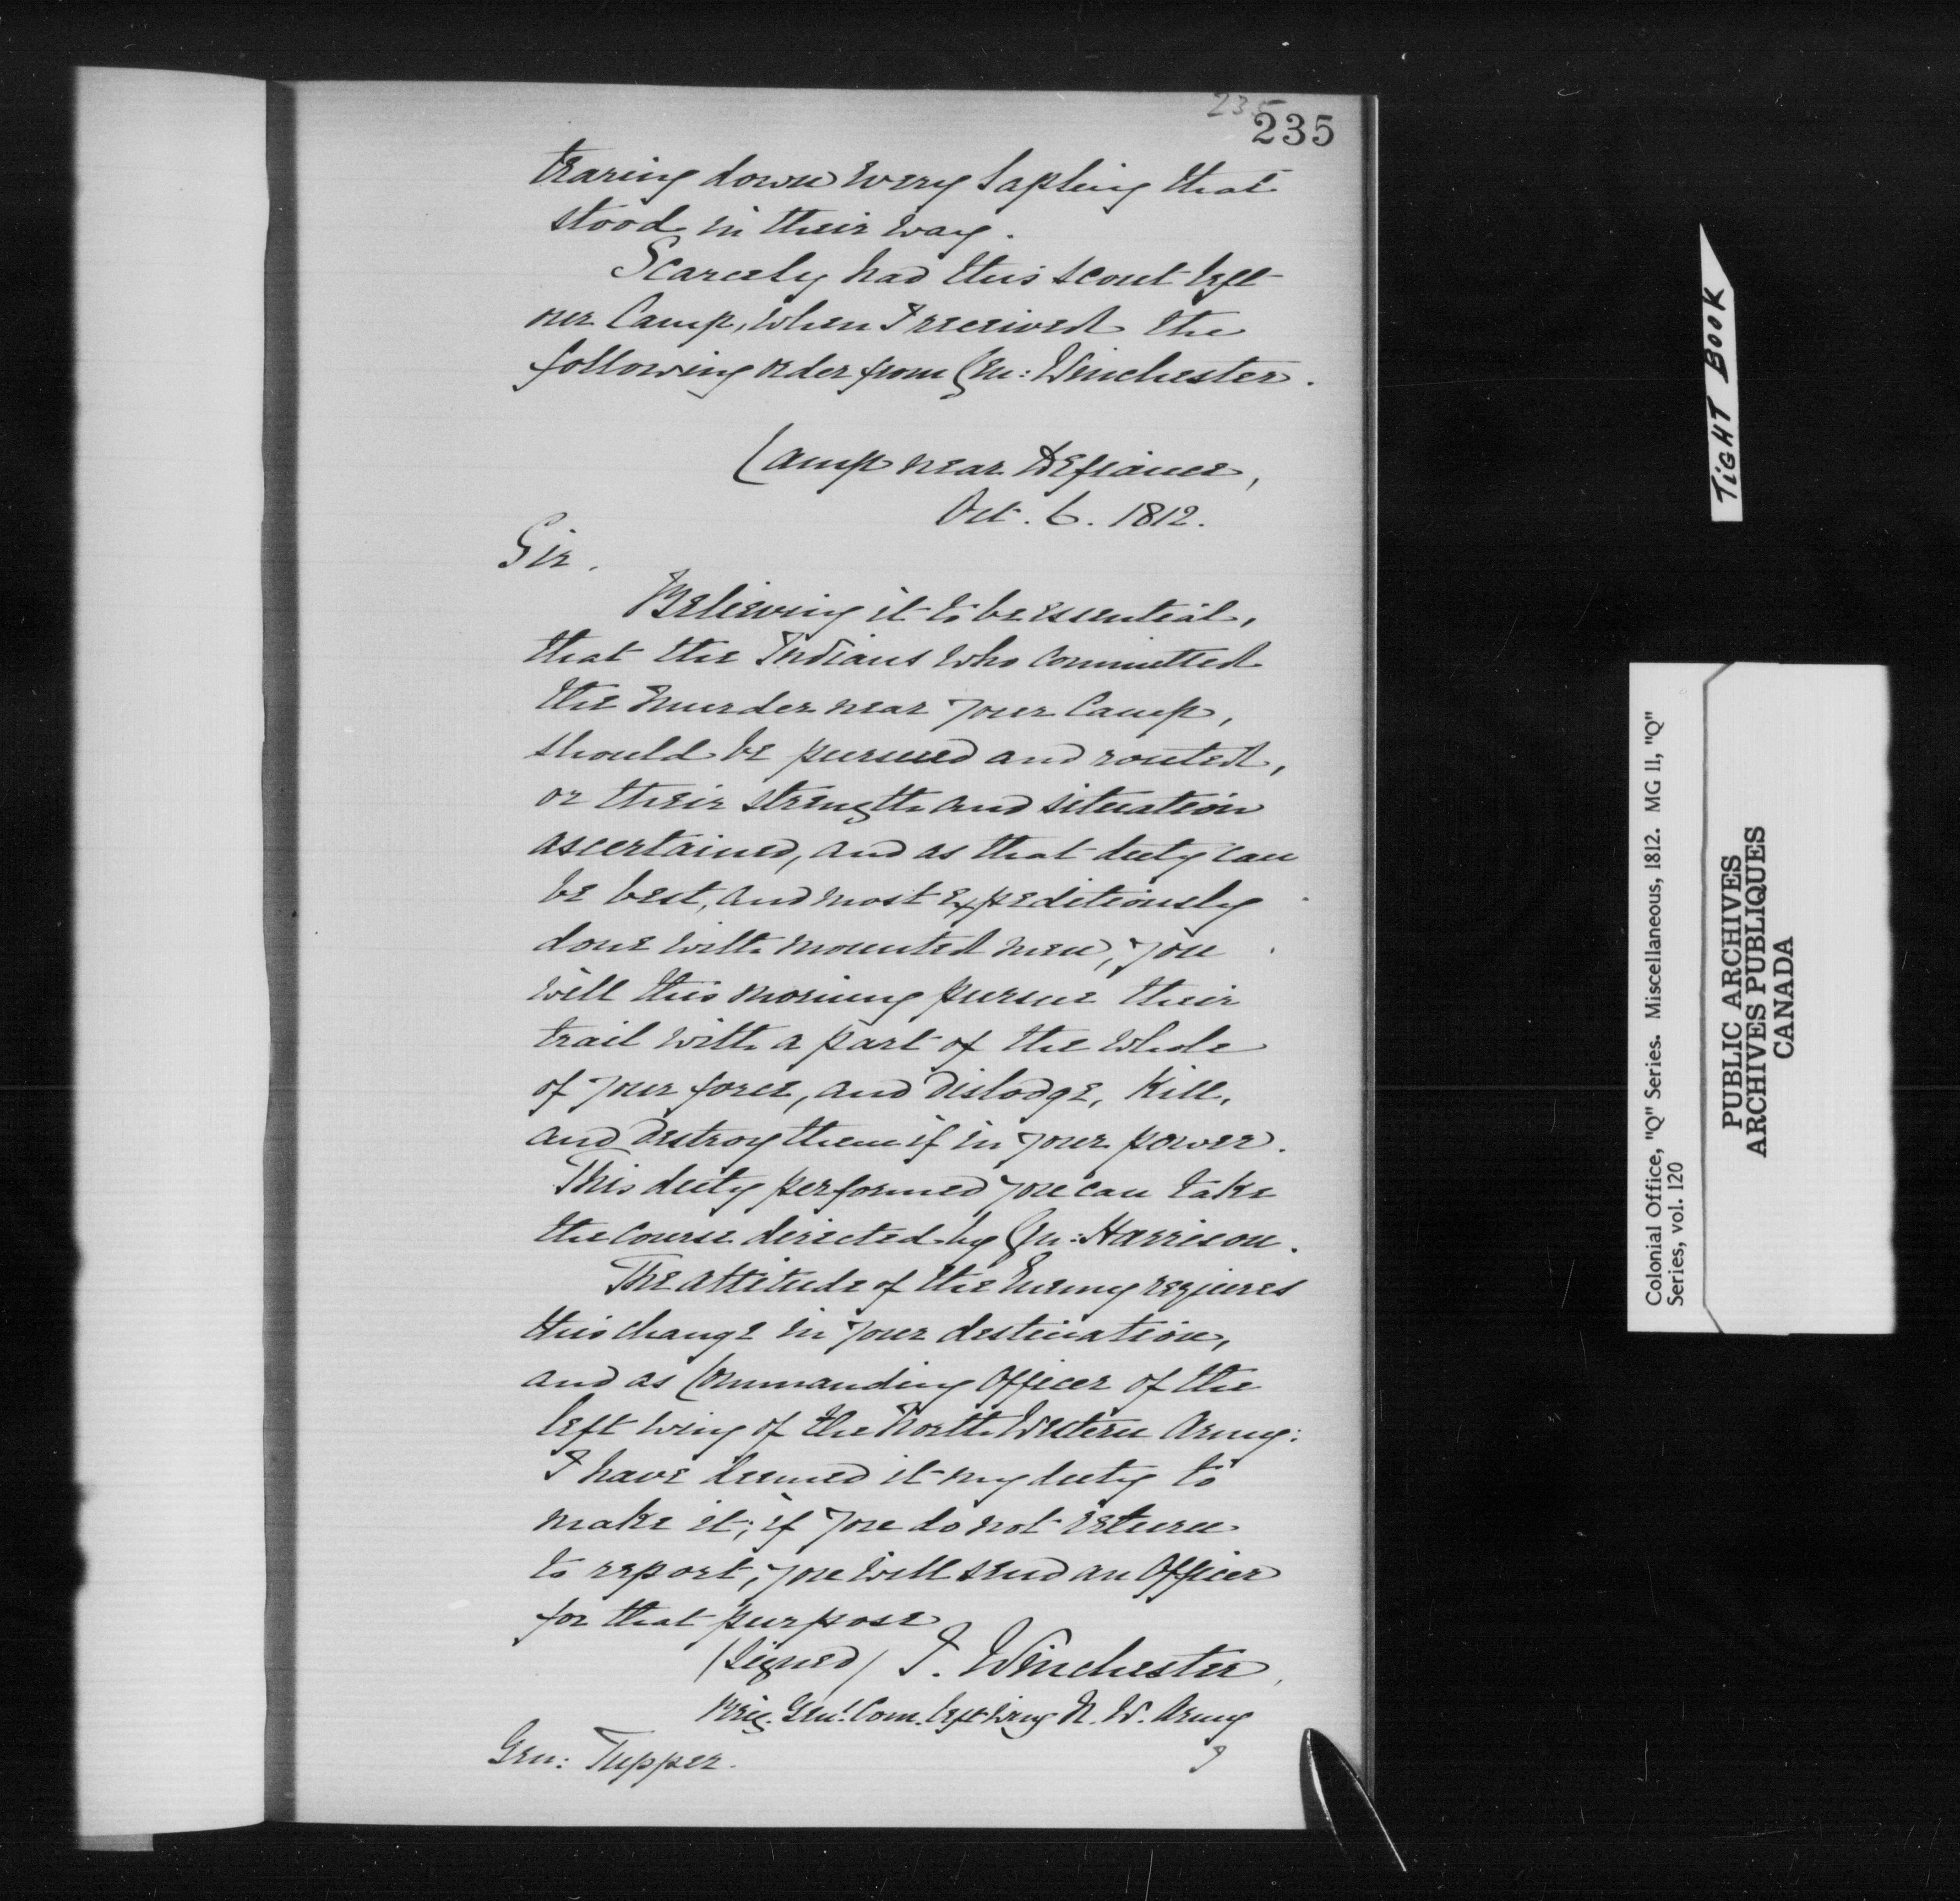 235
235
tearing down every Sapling that
stood in their way.
Scarcely had this scout left
our Camp, when I received the
following order from Gen: Winchester.
Camp near Defiance,
Oct. 6. 1812.
Sir.
Believing it to be essential,
that the Indians who committed
the murder near your Camp,
should be pursued and routed,
or their strength and situation
ascertained, and as that duty can
be best, and most expeditiously
done with mounted men, you
will this morning pursue their
trail with a part of the whole
of your force, and dislodge, kill,
and destroy them if in your power.
This duty performed you can take
the course directed by Gen: Harrison.
The attitude of the Enemy requires
this change in your destination,
and as Commanding Officer of the
left wing of the North Western Army:
I have deemed it my duty to
make it; if you do not return
to report, you will send an Officer
for that purpose
(signed) J. Winchester,
Brig. Genl. Com. left wing N. W. Army
Gen: Tupper.
I
TIGHT BOOK
Colonial Office, "Q" Series. Miscellaneous, 1812. MG 11, "Q"
Series, vol. 120
PUBLIC ARCHIVES
ARCHIVES PUBLIQUES
CANADA